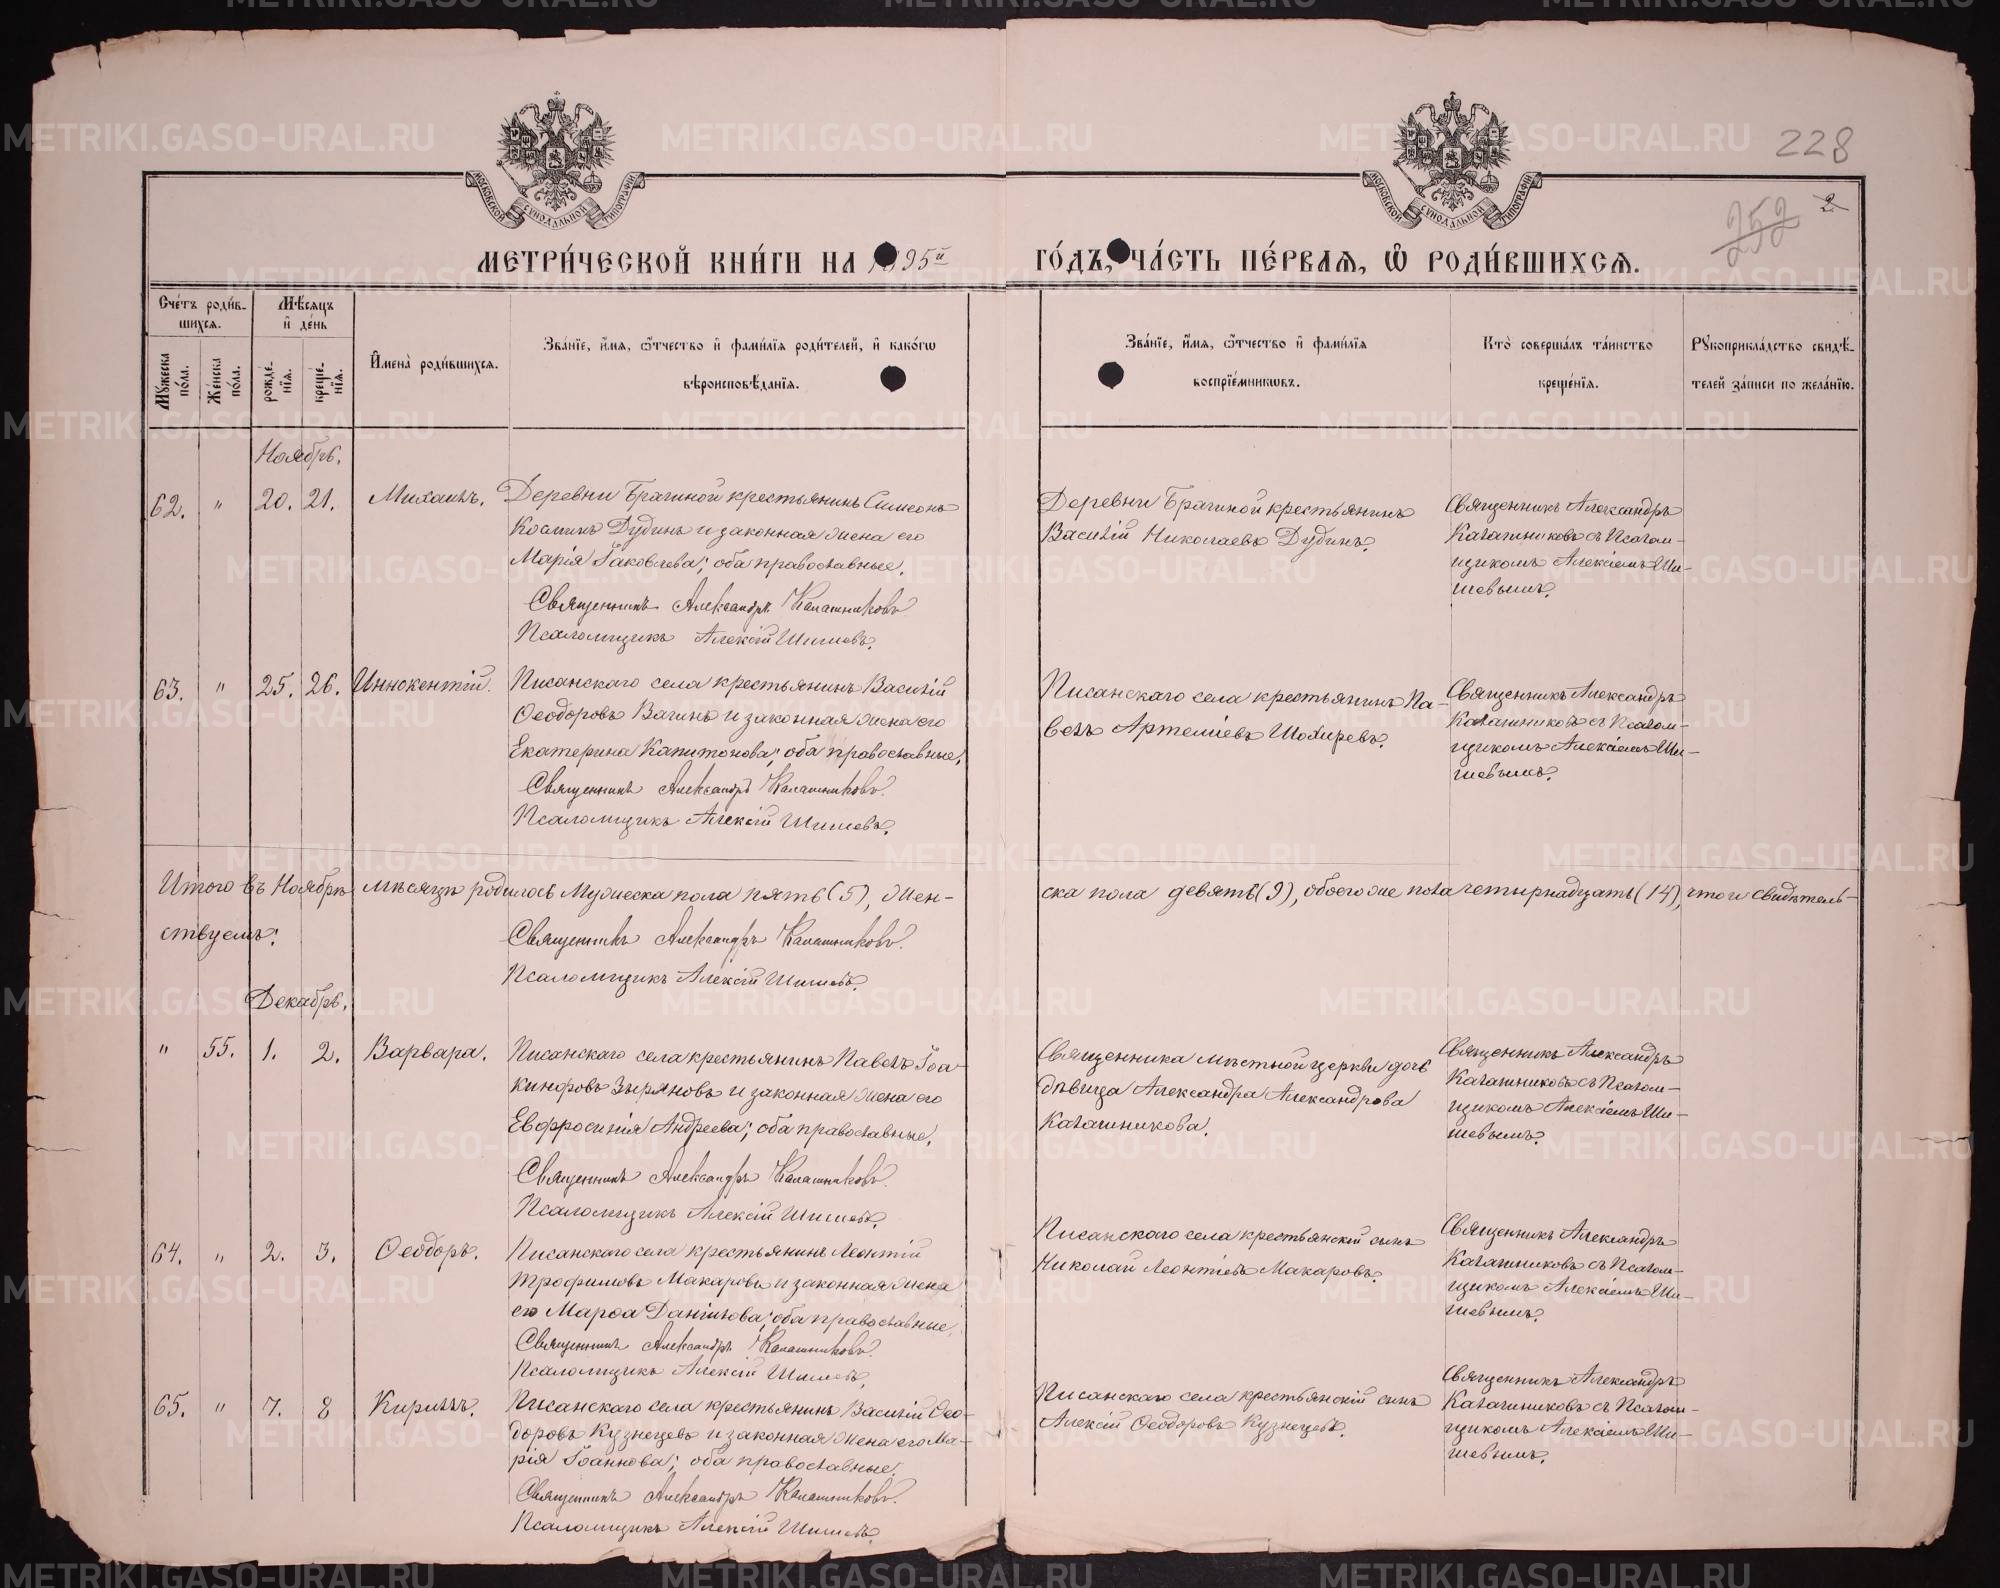 228
252
2
МОСКОВСКОЙ СѴНОДАЛЬНОЙ ТИПОГРАФІИ
МОСКОВСКОЙ СѴНОДАЛЬНОЙ ТИПОГРАФІИ
МЕТРИ́ЧЕСКОЙ КНИ́ГИ НА 1895й ГО́ДЪ, ЧА́СТЬ ПЕ́РВАЯ, Ѡ҆ РОДИ́ВШИХСЯ.
Сче́тъ роди́вшихся.
Мꙋ́жеска по́ла.
Же́нска по́ла.
Мѣ́сяцъ и҆ де́нь
рожде́нїя.
креще́нїя.
И҆мена̀ роди́вшихся.
Зва́нїе, и҆́мя, ѻ҆́тчество и҆ фами́лїя роди́телей, и҆ како́гѡ
вѣроисповѣ́данїя.
Зва́нїе, и҆́мя, ѻ҆́тчество и҆ фами́лїя
воспрїе́мникѡвъ.
Кто̀ соверша́лъ та́инство
креще́нїя.
Рꙋкоприкла́дство свидѣ́-
телей за́писи по жела́нїю.
Ноябрь.
62. " 20. 21. Михаилъ.
Деревни Брагиной крестьянинъ Симеонъ
Косминъ Дудинъ и законная жена его
Марія Іаковлева; оба православные.
Священникъ Александръ Калашниковъ.
Псаломщикъ Алексій Шишевъ.
Деревни Брагиной крестьянинъ
Василій Николаевъ Дудинъ.
Священникъ Александръ
Калашниковъ съ Псалом-
щикомъ Алексіемъ Ши-
шевымъ.
63. " 25. 26. Иннокентій.
Писанскаго села крестьянинъ Василій
Ѳеодоровъ Вагинъ и законная жена его
Екатерина Капитонова; оба православные.
Священникъ Александръ Калашниковъ.
Псаломщикъ Алексій Шишевъ.
Писанскаго села крестьянинъ Па-
велъ Артеміевъ Шохиревъ.
Священникъ Александръ
Калашниковъ съ Псалом-
щикомъ Алексіемъ Ши-
шевымъ.
Итого въ Ноябрѣ мѣсяцѣ родилось Мужеска пола пять (5), Жен-
ска пола девять (9), обоего же пола четырнадцать (14), что и свидѣтель-
ствуемъ:
Священникъ Александръ Калашниковъ.
Псаломщикъ Алексій Шишевъ.
Декабрь.
" 55. 1. 2. Варвара.
Писанскаго села крестьянинъ Павелъ Іоа-
кинфовъ Зыряновъ и законная жена его
Евфросинія Андреева; оба православные.
Священникъ Александръ Калашниковъ.
Псаломщикъ Алексій Шишевъ.
Священника мѣстной церкви дочь
дѣвица Александра Александрова
Калашникова.
Священникъ Александръ
Калашниковъ съ Псалом-
щикомъ Алексіемъ Ши-
шевымъ.
64. " 2. 3. Ѳеодоръ.
Писанскаго села крестьянинъ Леонтій
Трофимовъ Макаровъ и законная жена
его Марѳа Даніилова; оба православные.
Священникъ Александръ Калашниковъ.
Псаломщикъ Алексій Шишевъ.
Писанскаго села крестьянскій сынъ
Николай Леонтіевъ Макаровъ.
Священникъ Александръ
Калашниковъ съ Псалом-
щикомъ Алексіемъ Ши-
шевымъ.
65. " 7. 8 Кириллъ.
Писанскаго села крестьянинъ Василій Ѳео-
доровъ Кузнецевъ и законная жена его Ма-
рія Іоаннова; оба православные.
Священникъ Александръ Калашниковъ.
Псаломщикъ Алексій Шишевъ.
Писанскаго села крестьянскій сынъ
Алексій Ѳеодоровъ Кузнецевъ.
Священникъ Александръ
Калашниковъ съ Псалом-
щикомъ Алексіемъ Ши-
шевымъ.
METRIKI.GASO-URAL.RU